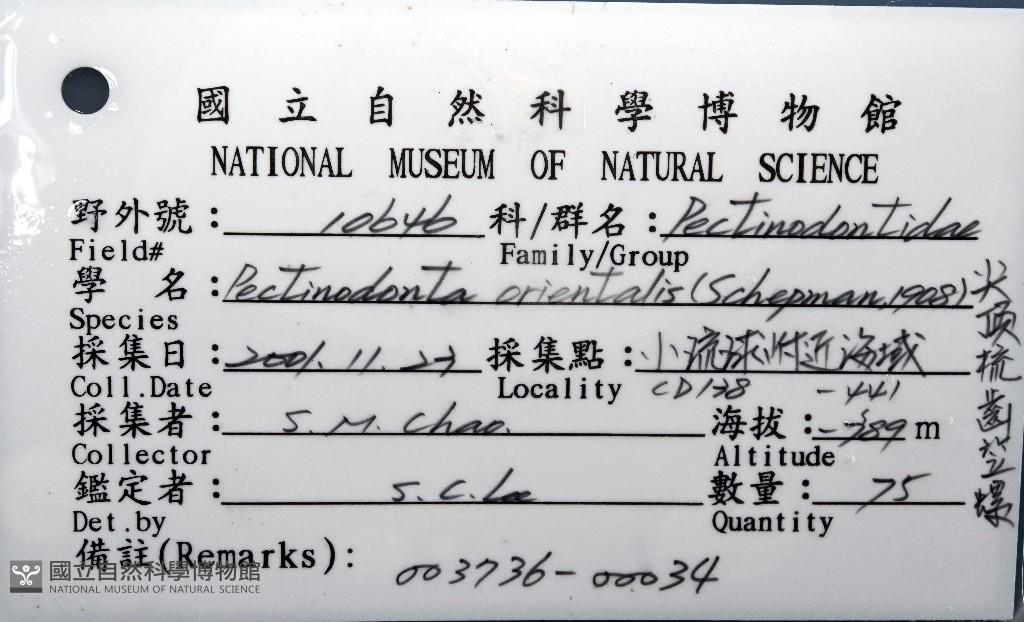 國立自然科學博物館
NATIONAL MUSEUM OF NATURAL SCIENCE
野外號: 10646 科/群名: Pectinodontidae
Field# Family/Group
學 名: Pectinodonta orientalis (Schepman, 1908)
Species
尖頂梳齒笠螺
採集日: 2001.11.27 採集點: 小流球附近海域
Coll.Date Locality CD138 -441
採集者: S. M. Chao. 海拔: -389 m
Collector Altitude
鑑定者: S. C. Lee 數量: 75
Det.by Quantity
備註(Remarks):
003736-00034
國立自然科學博物館
NATIONAL MUSEUM OF NATURAL SCIENCE